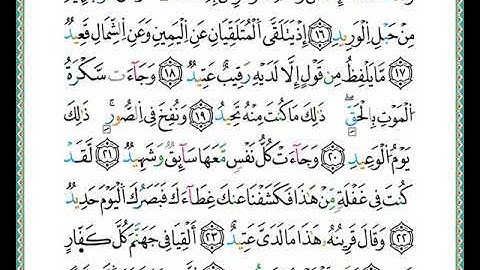 مِنْ حَبْلِ الْوَرِيدِ ﴿١٦﴾ إِذْ يَتَلَقَّى الْمُتَلَقِّيَانِ عَنِ الْيَمِينِ وَعَنِ الشِّمَالِ قَعِيدٌ
﴿١٧﴾ مَّا يَلْفِظُ مِن قَوْلٍ إِلَّا لَدَيْهِ رَقِيبٌ عَتِيدٌ ﴿١٨﴾ وَجَآءَتْ سَكْرَةُ
الْمَوْتِ بِالْحَقِّ ۖ ذَٰلِكَ مَا كُنتَ مِنْهُ تَحِيدُ ﴿١٩﴾ وَنُفِخَ فِي الصُّورِ ۚ ذَٰلِكَ
يَوْمُ الْوَعِيدِ ﴿٢٠﴾ وَجَآءَتْ كُلُّ نَفْسٍ مَّعَهَا سَآئِقٌ وَشَهِيدٌ ﴿٢١﴾ لَّقَدْ
كُنتَ فِي غَفْلَةٍ مِّنْ هَٰذَا فَكَشَفْنَا عَنكَ غِطَآءَكَ فَبَصَرُكَ الْيَوْمَ حَدِيدٌ
﴿٢٢﴾ وَقَالَ قَرِينُهُ هَٰذَا مَا لَدَيَّ عَتِيدٌ ﴿٢٣﴾ أَلْقِيَا فِي جَهَنَّمَ كُلَّ كَفَّارٍ